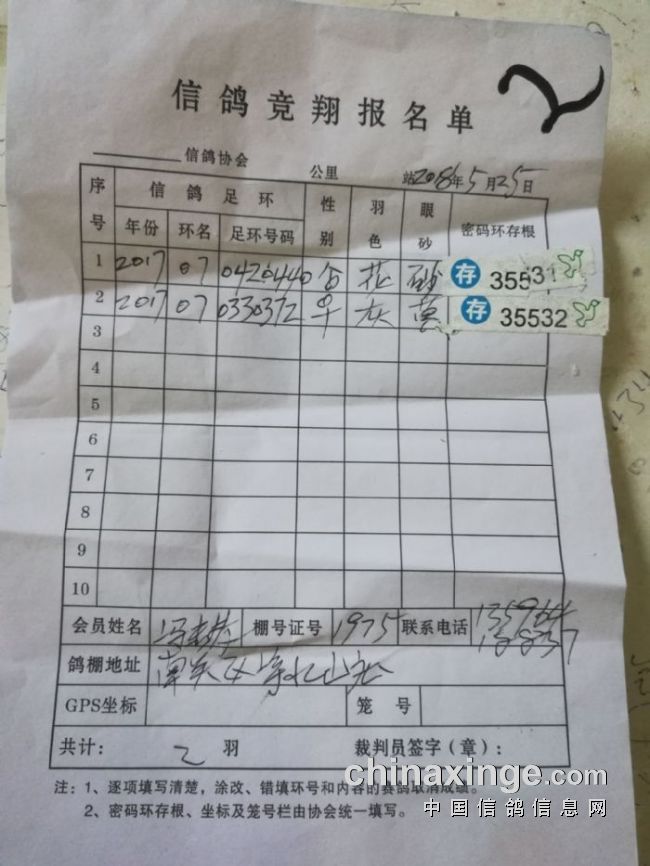 信鸽竞翔报名单
信鸽协会 公里 站2018年5月25日
序号 信鸽足环 性别 羽色 眼砂 密码环存根
年份 环名 足环号码
1 2017 07 0420440 花 砂 存 35531
2 2017 07 0330372 灰 黄 存 35532
3
4
5
6
7
8
9
10
会员姓名 棚号证号 1975 联系电话
鸽棚地址
GPS坐标 笼号
共计: 2 羽 裁判员签字(章):
注:1、逐项填写清楚,涂改、错填环号和内容的赛鸽取消成绩。
2、密码环存根、坐标及笼号栏由协会统一填写。
chinaxinge.com
中国信鸽信息网